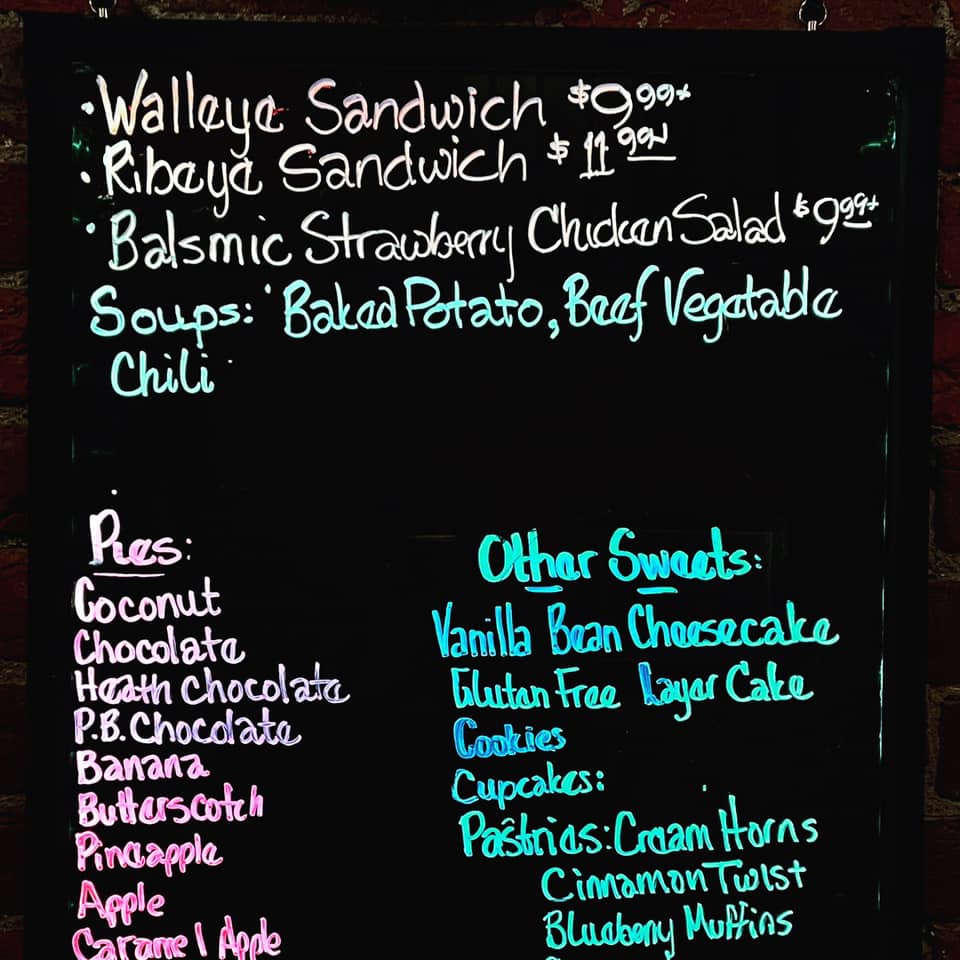 • Walleye Sandwich $9.99+
• Ribeye Sandwich $11.99
• Balsmic Strawberry Chicken Salad $9.99+
Soups: Baked Potato, Beef Vegetable
Chili
Pies:
Coconut
Chocolate
Heath Chocolate
P.B. Chocolate
Banana
Butterscotch
Pineapple
Apple
Caramel Apple
Other Sweets:
Vanilla Bean Cheesecake
Gluten Free Layer Cake
Cookies
Cupcakes:
Pastries: Cream Horns
Cinnamon Twist
Blueberry Muffins